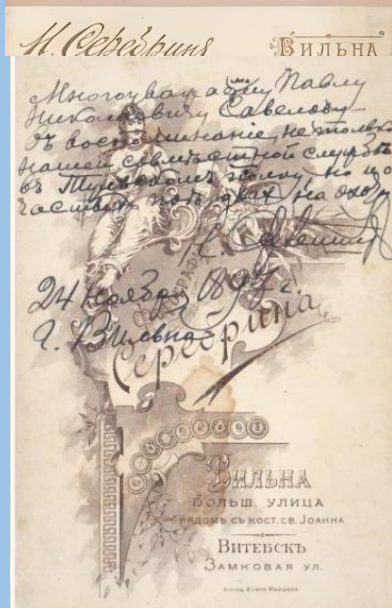 М. Серебринъ ВИЛЬНА
Многоуважаемому Павлу
Николаевичу Савелову
въ воспоминаніе не только
нашей совмѣстной службы
въ полку, но и о
частыхъ на
24 Ноября 1897 г.
г. Вильна
Серебрина
ВИЛЬНА
БОЛЬШ. УЛИЦА
РЯДОМЪ СЪ КОСТ. СВ. ІОАННА
ВИТЕБСКЪ
ЗАМКОВАЯ УЛ.